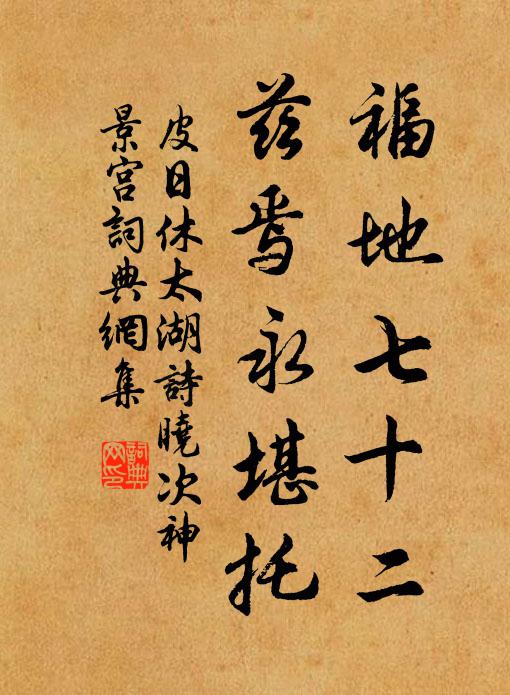 福地七十二
茲焉永堪托
皮日休太湖詩曉次神
景宮詞典網集
詞典
网印